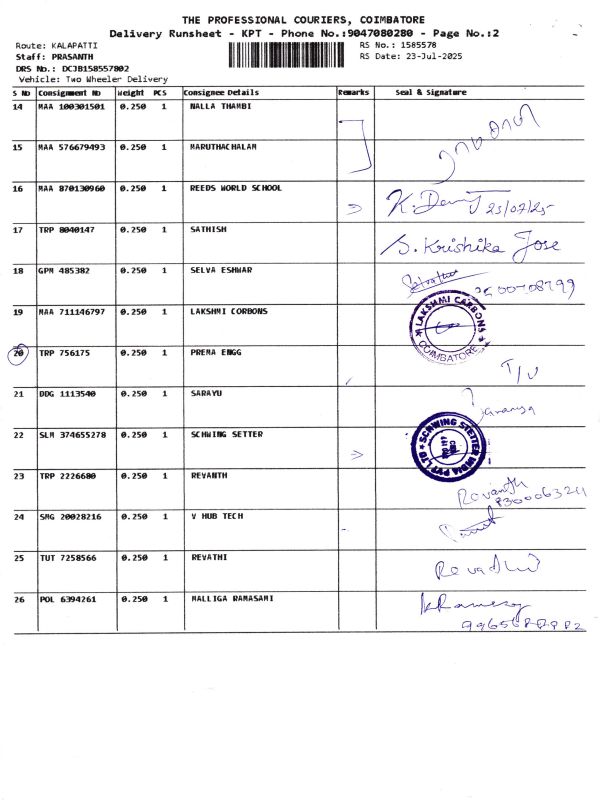 THE PROFESSIONAL COURIERS, COIMBATORE
Delivery Runsheet - KPT - Phone No.:9047080280 - Page No.:2
Route: KALAPATTI RS No.: 1585578
Staff: PRASANTH RS Date: 23-Jul-2025
DRS No.: DCJB158557802
Vehicle: Two Wheeler Delivery
S No Consignment No Weight PCS Consignee Details Remarks Seal & Signature
14 MAA 100301501 0.250 1 NALLA THAMBI
15 MAA 576679493 0.250 1 MARUTHACHALAM
16 MAA 870130960 0.250 1 REEDS WORLD SCHOOL
23/07/25
17 TRP 8040147 0.250 1 SATHISH
S. Krishika Jose
18 GPM 485382 0.250 1 SELVA ESHWAR
19 MAA 711146797 0.250 1 LAKSHMI CORBONS
LAKSHMI CARBONS
COIMBATORE
20 TRP 756175 0.250 1 PREMA ENGG
21 DDG 1113540 0.250 1 SARAYU
22 SLM 374655278 0.250 1 SCHWING SETTER
SCHWING STETTER INDIA PVT LTD
23 TRP 2226680 0.250 1 REVANTH
Revanth
24 SMG 20028216 0.250 1 V HUB TECH
25 TUT 7258566 0.250 1 REVATHI
26 POL 6394261 0.250 1 MALLIGA RAMASAMI